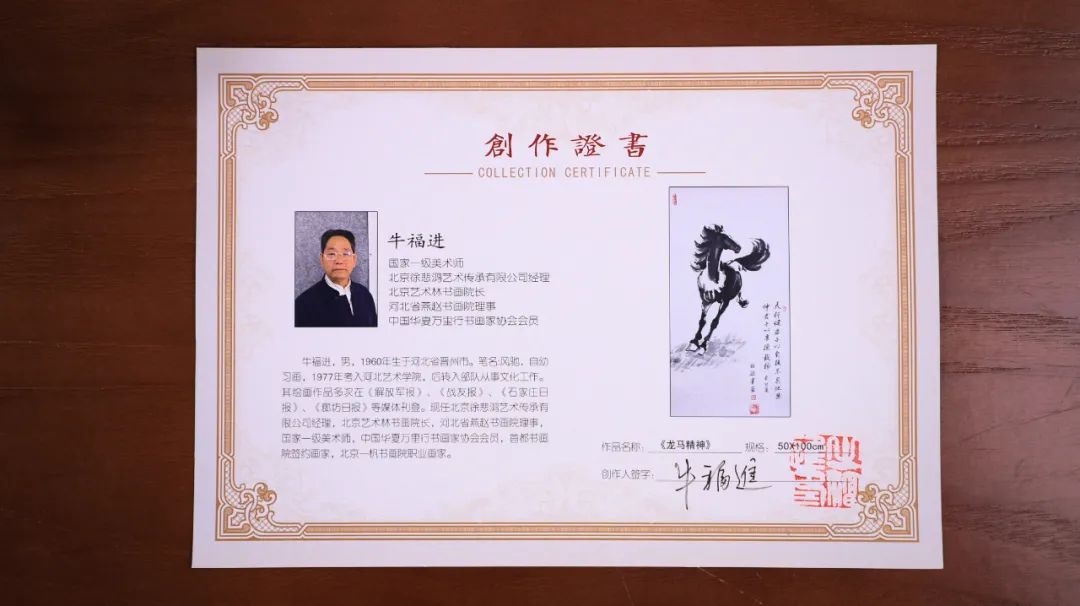 創作證書
COLLECTION CERTIFICATE
牛福进
国家一级美术师
北京徐悲鸿艺术传承有限公司经理
北京艺术林书画院长
河北省燕赵书画院理事
中国华夏万里行书画家协会会员
牛福进，男，1960年生于河北省晋州市。笔名:风驰，自幼
习画，1977年考入河北艺术学院，后转入部队从事文化工作。
其绘画作品多次在《解放军报》、《战友报》、《石家庄日
报》、《廊坊日报》等媒体刊登。现任北京徐悲鸿艺术传承有
限公司经理，北京艺术林书画院长，河北省燕赵书画院理事，
国家一级美术师，中国华夏万里行书画家协会会员，首都书画
院签约画家，北京一帆书画院职业画家。
天行健君子以自强不息地势
坤君子以厚德载物
作品名称：《龙马精神》 规格：50X100cm
创作人签字：牛福進